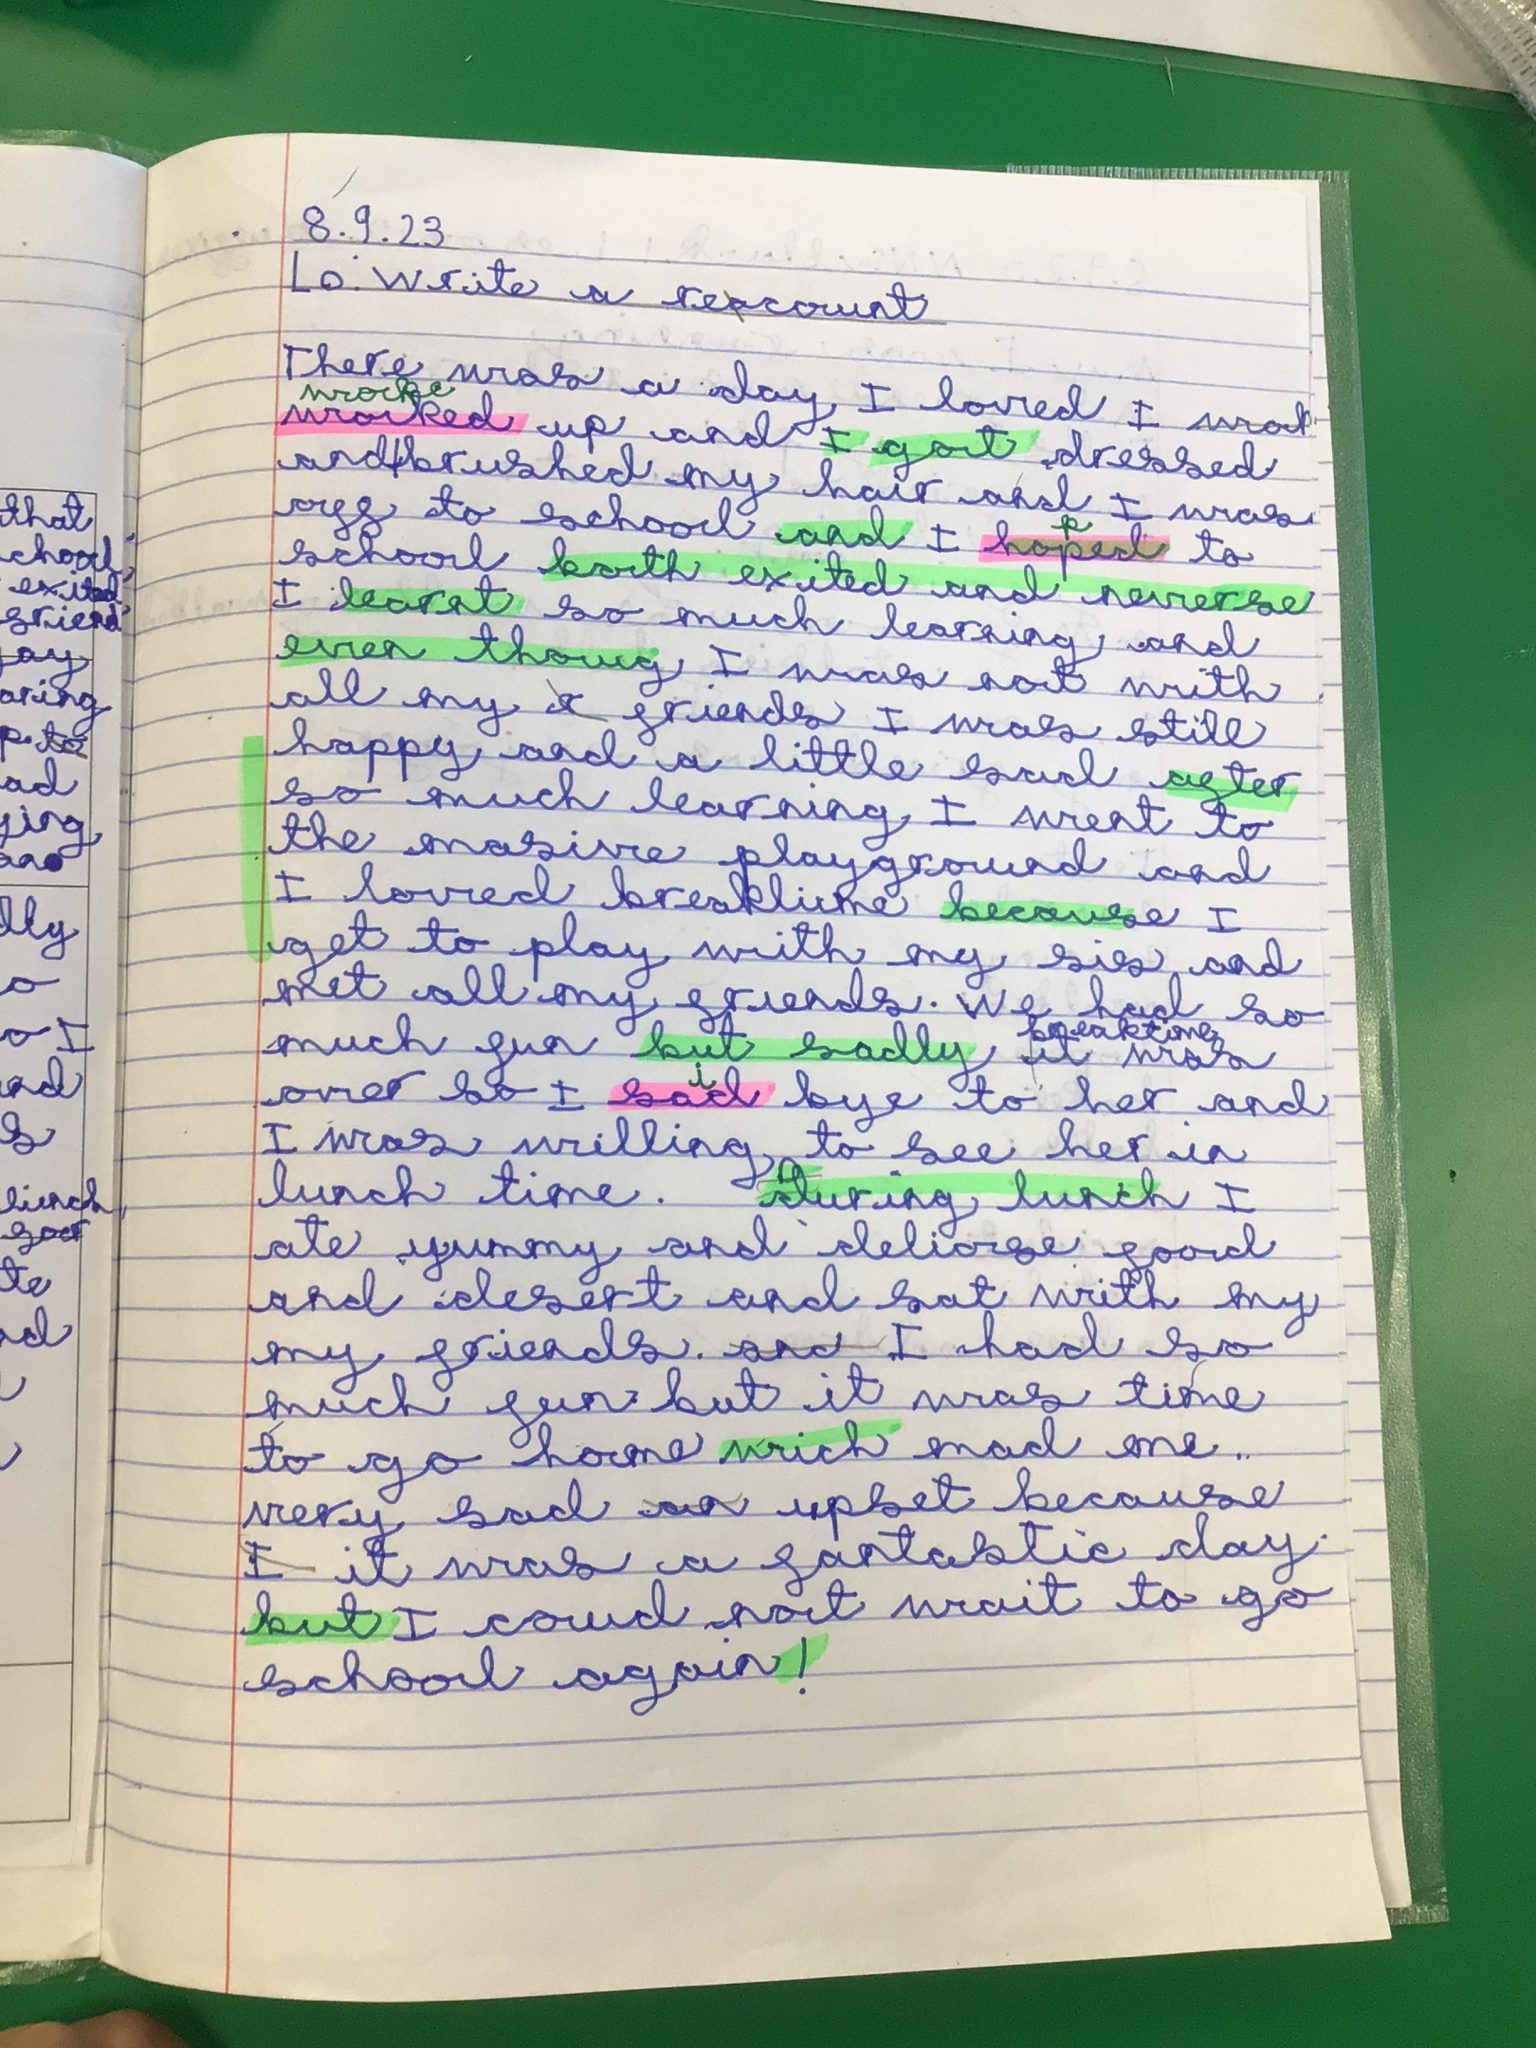 8.9.23
Lo: Write a recount
There was a day I loved I wok
woke
worked up and I got dressed
and brushed my hair and I was
off to school and I hoped to
p
school both exited and neverse
I learnt so much learning and
even thoug I was not with
all my friends I was still
happy and a little sad after
so much learning I went to
the masive playground and
I loved breaktime because I
get to play with my sis and
met all my friends. We had so
breaktime
much fun but sadly it was
i
over so I sad bye to her and
I was willing to see her in
lunch time. During lunch I
ate yummy and deliorse food
and desert and sat with my
my friends. and I had so
much fun but it was time
to go home wich mad me
very sad an upset because
I it was a fantastic day.
but I coud not wait to go
school again!
that
school,
exited
friend
jay
aring
p to
ad
ying
dly
so
o I
and
s
lunch,
te
nd